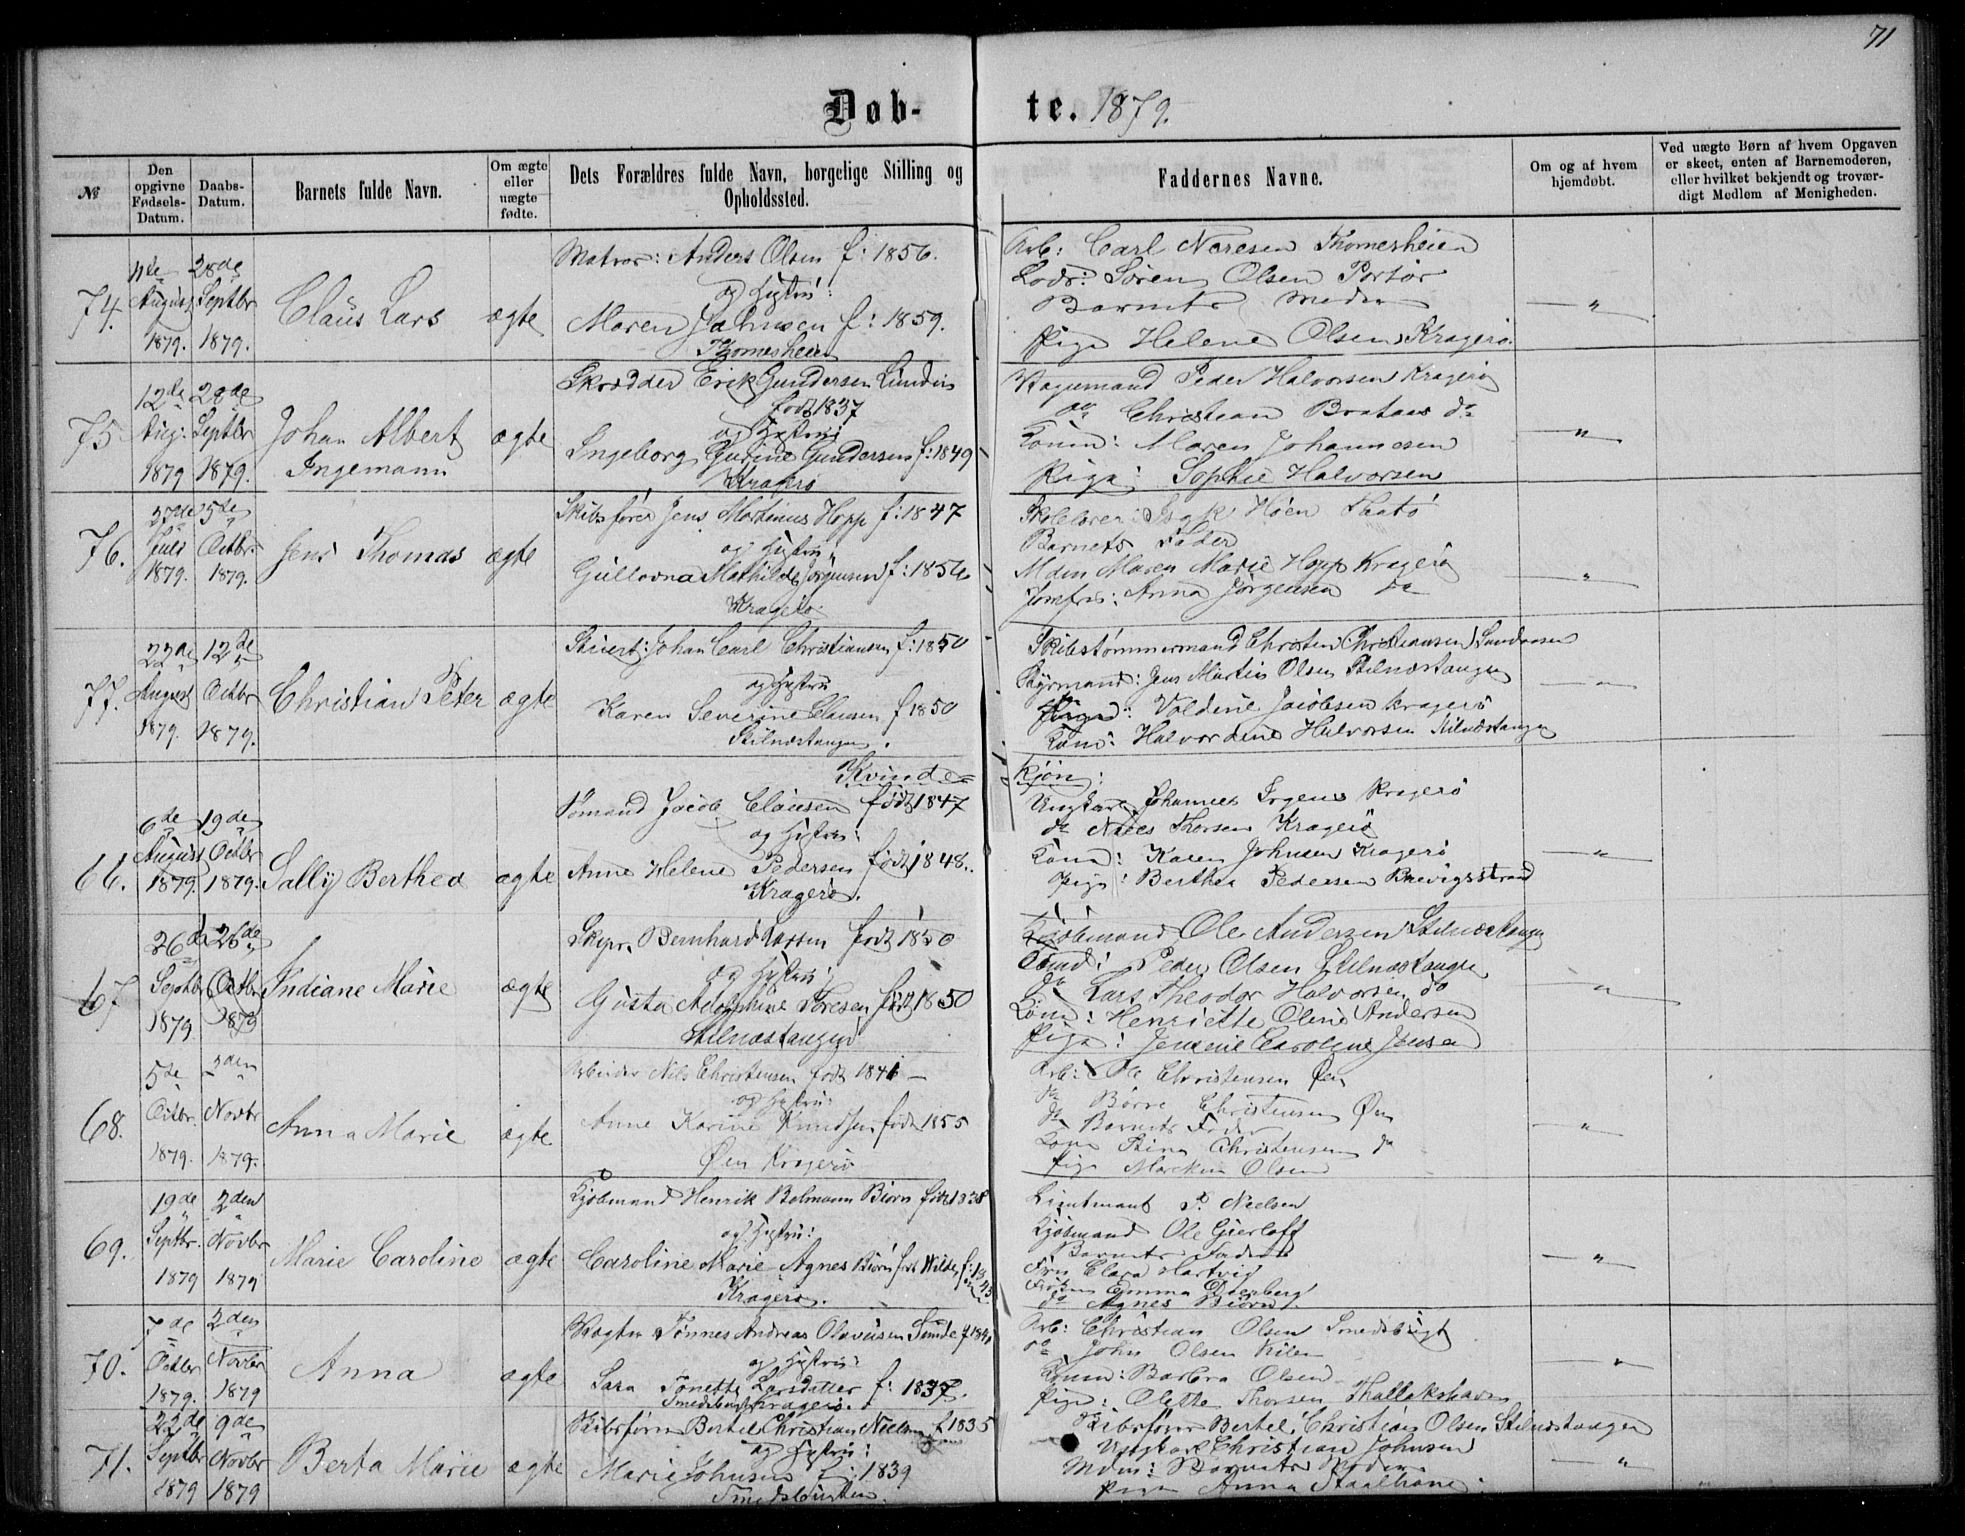 71
Døb- te. 1879.
№
Den opgivne Fødsels-Datum.
Daabs-Datum.
Barnets fulde Navn.
Om ægte eller uægte fødte.
Dets Forældres fulde Navn, borgelige Stilling og Opholdssted.
Faddernes Navne.
Om og af hvem hjemdøbt.
Ved uægte Børn af hvem Opgaven er skeet, enten af Barnemoderen, eller hvilket bekjendt og troværdigt Medlem af Menigheden.
74.
August 1879.
28de Septbr 1879.
Claus Lars
ægte
Matros: Anders Olsen f: 1856.
og Hustru:
Maren Johnsen f: 1859.
Thomesheien
Arb: Carl Neresen Thomesheien
Lods: Søren Olsen Portør
Barnets Moder
Pige Helene Olsen Kragerø.
"
75.
12de Aug. 1879
28de Septbr 1879.
Johan Albert
Ingemann
ægte
Skrædder Erik Gundersen Lundin
født 1837
og Hustru
Ingeborg Gurine Gundersen f: 1849
Kragerø
Peder Halvorsen Kragerø
do Christian Brataas do
Kone: Maren Johannesen
Pige: Sophie Halvorsen
"
76.
27de Juli 1879.
5te Octbr. 1879.
Jens Thomas
ægte
Skibsfører Jens Martinus Hopp f: 1847
og Hustru
Gullovna Mathilde Jørgensen f: 1856
Kragerø.
Skolelærer: Isak Høen Skaatø
Barnets Fader
Mdm Maren Marie Hopp Kragerø
Jomfru: Anna Jørgensen do
"
77.
22de August 1879.
12te Octbr 1879.
Christian Peter
ægte
Stuert: Johan Carl Christiansen f: 1850
og Hustru
Karen Severine Clausen f 1850
Stilnæstangen.
Skibstømmermand Christen Christiansen
Styrmand: Jens Martin Olsen Stilnæstangen
Pige: Valdine Jacobsen Kragerø
Kone: Halvordine Halvorsen Stilnæstangen
"
Kvinde- kjøn:
66.
6de August 1879
19de Octbr 1879.
Sally Berthea
ægte
Sømand Jacob Clausen født 1847
og Hustru:
Anne Helene Pedersen født 1848.
Kragerø.
Ungkarl Johannes Kragerø
do Thorsen Kragerø
Kone: Karen Johnsen Kragerø
Pige: Berthea Pedersen Brevigsstrand
"
67
26de Septbr 1879
26de Octbr 1879
Indiane Marie
ægte
Skipr. Bernhard Larsen født 1850
og Hustru:
Gusta Adolphine Toresen født 1850
Stilnæstangen
Kjøbmand Ole Andersen Stilnæstangen
Peder Olsen Stilnæstangen
do Lars Theodor Halvorsen do
Kone: Henriette Oline Andersen
Pige: Jensine Caroline Jensen
"
68.
5te Octbr. 1879.
2den Novbr 1879.
Anna Marie
ægte
Arbeider Nils Christensen født 1841
og Hustru:
Anne Karine Knudsen født 1855
Øen Kragerø
Arb: Ole Christensen Øen
do Børre Christensen Øen
do Barnets Fader
Kone Stina Christensen do
Pige Olsen
"
69.
19de Septbr. 1879
2den Novbr 1879
Marie Caroline
ægte
Kjøbmand Henrik Bolmann Biørn født 1838
og Hustru:
Caroline Marie Agnes Biørn født Wilde f: 1845
Kragerø.
Lieutnant P. Nielsen
Kjøbmand Ole Gierløff
Barnets Fader
Fru Clara Hartvig
Frøken Emma
do Agnes Biørn
"
70.
7de Octbr 1879.
2den Novbr 1879
Anna
ægte
Vægter Tønnes Andreas Olavusen Sunde
og Hustru:
Sara Tonette Larsdatter f: 1837.
Smedsbugt Kragerø.
Arb: Christian Olsen Smedsbugt
do John Olsen Kilen
Kone: Barbra Olsen
Pige: Olette Thorsen Thallakshavn
"
71.
22de Septbr 1879
9de Novbr 1879
Berta Marie
ægte
Skibsfører Bertel Christian Nielsen f 1835
og Hustru:
Marie Johnsen f: 1839
Skibsfører Bertel Christian Olsen Stilnæstangen
Ungkarl Christian Johnsen
Mdm: Barnets Moder
Pige Anna Staalhane
"